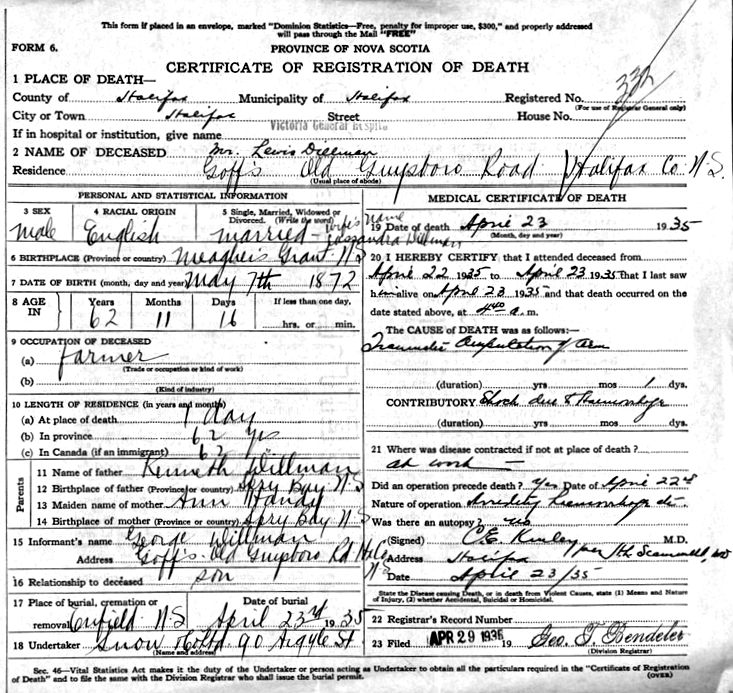 This form if placed in an envelope, marked "Dominion Statistics—Free, penalty for improper use, $300," and properly addressed
will pass through the Mail "FREE"
FORM 6.
PROVINCE OF NOVA SCOTIA
CERTIFICATE OF REGISTRATION OF DEATH
332
1 PLACE OF DEATH—
County of Halifax Municipality of Halifax Registered No.
(For use of Registrar General only)
City or Town Halifax Street House No.
If in hospital or institution, give name Victoria General Hospital
2 NAME OF DECEASED Mr. Lewis Dillman
Residence Goff's Old Guysboro Road Halifax Co N.S.
(Usual place of abode)
PERSONAL AND STATISTICAL INFORMATION
3 SEX 4 RACIAL ORIGIN 5 Single, Married, Widowed or Divorced. (Write the word)
Male English Married - wife's name Cassandra Dillman
6 BIRTHPLACE (Province or country) Meagher's Grant N.S
7 DATE OF BIRTH (month, day and year) May 7th 1872
8 AGE IN Years Months Days If less than one day,
62 11 16 hrs. or min.
9 OCCUPATION OF DECEASED
(a) farmer
(Trade or occupation or kind of work)
(b)
(Kind of industry)
10 LENGTH OF RESIDENCE (in years and months)
(a) At place of death 1 day
(b) In province 62 yrs
(c) In Canada (if an immigrant) 62
Parents
11 Name of father Kenneth Dillman
12 Birthplace of father (Province or country) Spry Bay N.S
13 Maiden name of mother Ann
14 Birthplace of mother (Province or country) Spry Bay N.S
15 Informant's name George Dillman
Address Goff's Old Guysboro Rd Hfx Co N.S
16 Relationship to deceased son
17 Place of burial, cremation or removal Date of burial
Enfield N.S April 23rd 1935
18 Undertaker Snow & Co Ltd 90 Argyle St
(Name and address)
MEDICAL CERTIFICATE OF DEATH
19 Date of death April 23 1935
(Month, day and year)
20 I HEREBY CERTIFY, that I attended deceased from
April 22 1935 to April 23 1935 that I last saw
him alive on April 23 1935 and that death occurred on the
date stated above, at 4 40 a.m.
The CAUSE OF DEATH was as follows:—
Traumatic Amputation of Arm
(duration) yrs mos 1 dys.
CONTRIBUTORY Shock due to Haemorrhage
(duration) yrs. mos. dys.
21 Where was disease contracted if not at place of death?
at work —
Did an operation precede death? Yes Date of April 22nd
Nature of operation Haemorrhage etc.
Was there an autopsy? No
(Signed) C.E. Kinley M.D.
per
Address Halifax
Date April 23/35
State the Disease causing Death, or in death from Violent Causes, state (1) Means and Nature of Injury, (2) whether Accidental, Suicidal or Homicidal.
22 Registrar's Record Number
23 Filed APR 29 1935 19 Geo. T. Bendeler
(Division Registrar)
Sec. 46—Vital Statistics Act makes it the duty of the Undertaker or person acting as Undertaker to obtain all the particulars required in the "Certificate of Registration
of Death" and to file the same with the Division Registrar who shall issue the burial permit. (OVER)